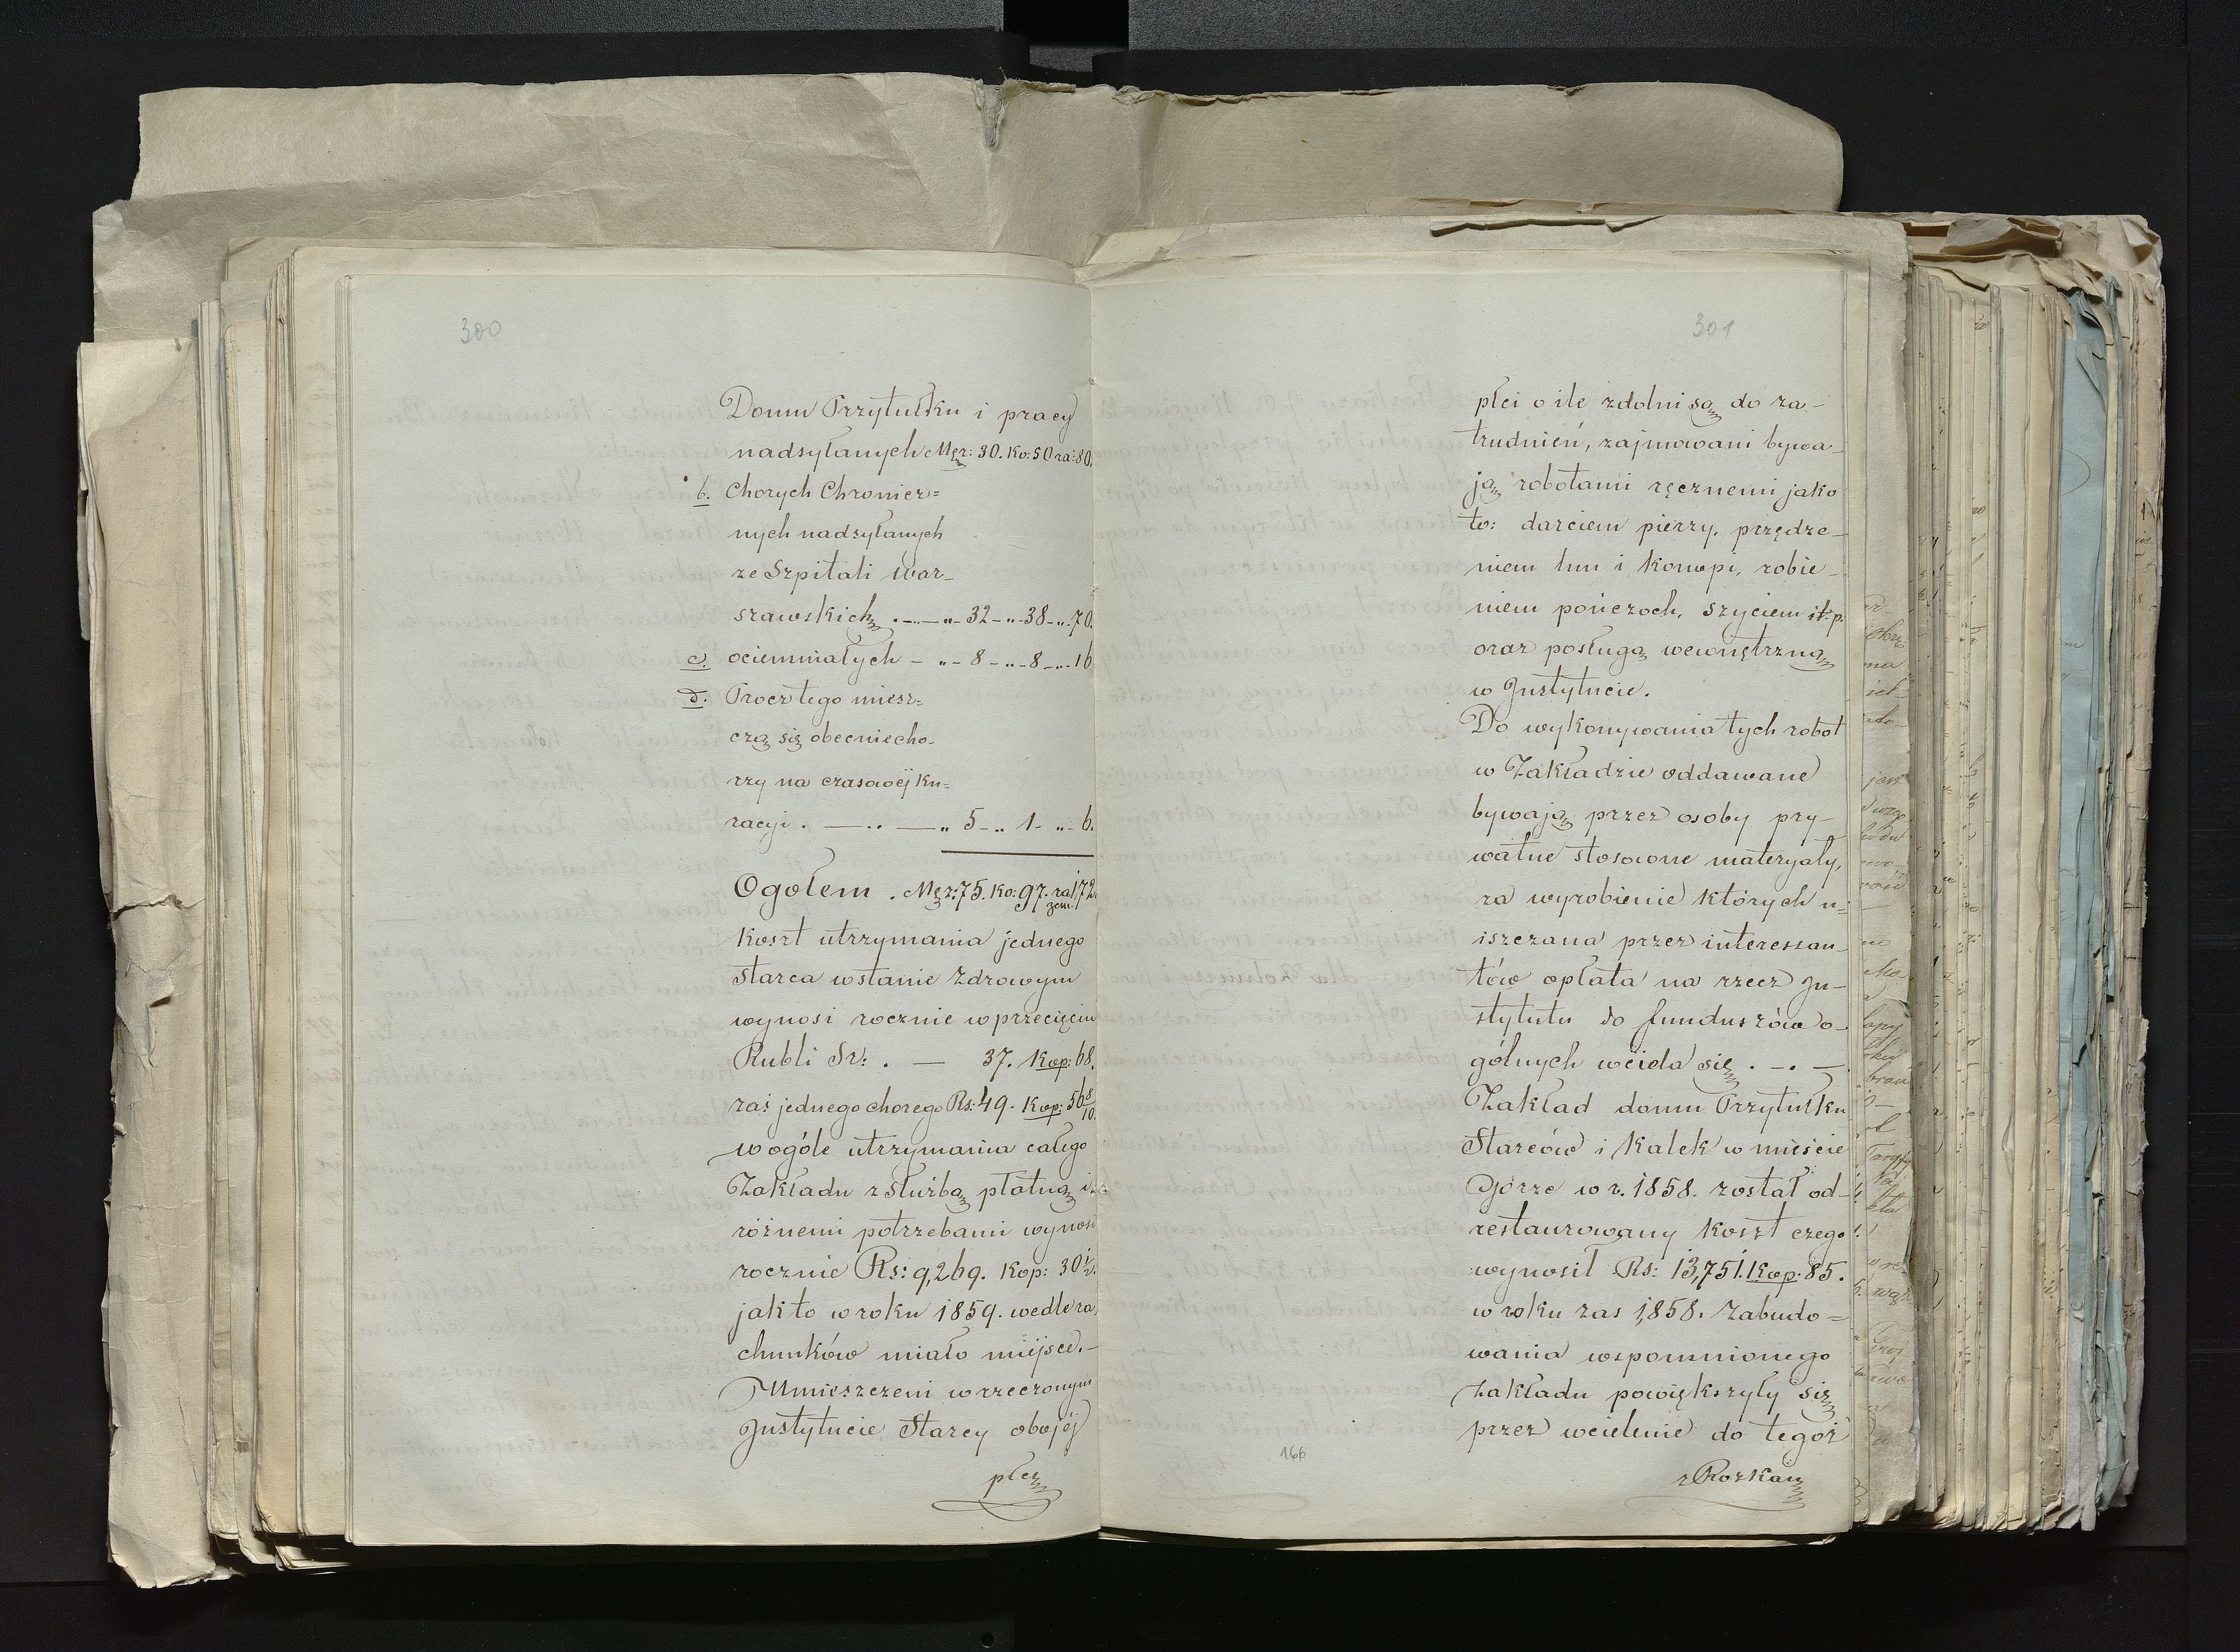 300
Domu Przytułku i pracy
nadsyłanych Męz: 30. Ko: 50 ra: 80.
b. Chorych Chronicz=
nych nadsyłanych
ze Szpitali War-
szawskich . — „ — 32 — „ — 38 — „ — 70.
c. ociemniałych — „ — 8 — „ — 8 — „ — 16
d. Procz tego miesz=
czą się obecnie cho-
rzy na czasowéj ku=
racyi . — „ — „ 5 — „ 1 — „ — 6.
Ogołem . Męz: 75. Ko: 97. razem: 172.
Koszt utrzymania jednego
starca w stanie zdrowym
wynosi rocznie w przecięciu
Rubli Sr: . — 37. Kop: 68.
zaś jednego chorego Rs: 49. Kop: 56 8/10.
w ogóle utrzymania całego
Zakładu z służbą płatną i
różnemi potrzebami wynosi
rocznie Rs: 9,269. Kop: 30 1/2.
jak to w roku 1859. wedle ra-
chunków miało miejsce. —
Umieszczeni w rzeczonym
Instytucie Starcy obojéj
płci
301
płci o ile zdolni są do za-
trudnień, zajmowani bywa-
ją robotami ręcznemi jako
to: darciem pierzy, przędze-
niem lnu i konopi, robie-
niem pończoch, szyciem it.p.
oraz posługą wewnętrzną
w Instytucie.
Do wykonywania tych robot
w Zakładzie oddawane
bywają przez osoby pry-
watne stosowne materyały,
za wyrobienie których u=
iszczana przez interessan-
tów opłata na rzecz In-
stytutu do funduszów o-
gólnych wciela się . — . —
Zakład domu Przytułku
Starców i Kalek w mieście
Górze w r. 1858. został od-
restaurowany koszt czego
wynosił Rs: 13,751. Kop: 85.
w roku zas 1858. Zabudo=
wania wspomnionego
zakładu powiększyły się
przez wcielenie do tegoż
z Rozkazu
166